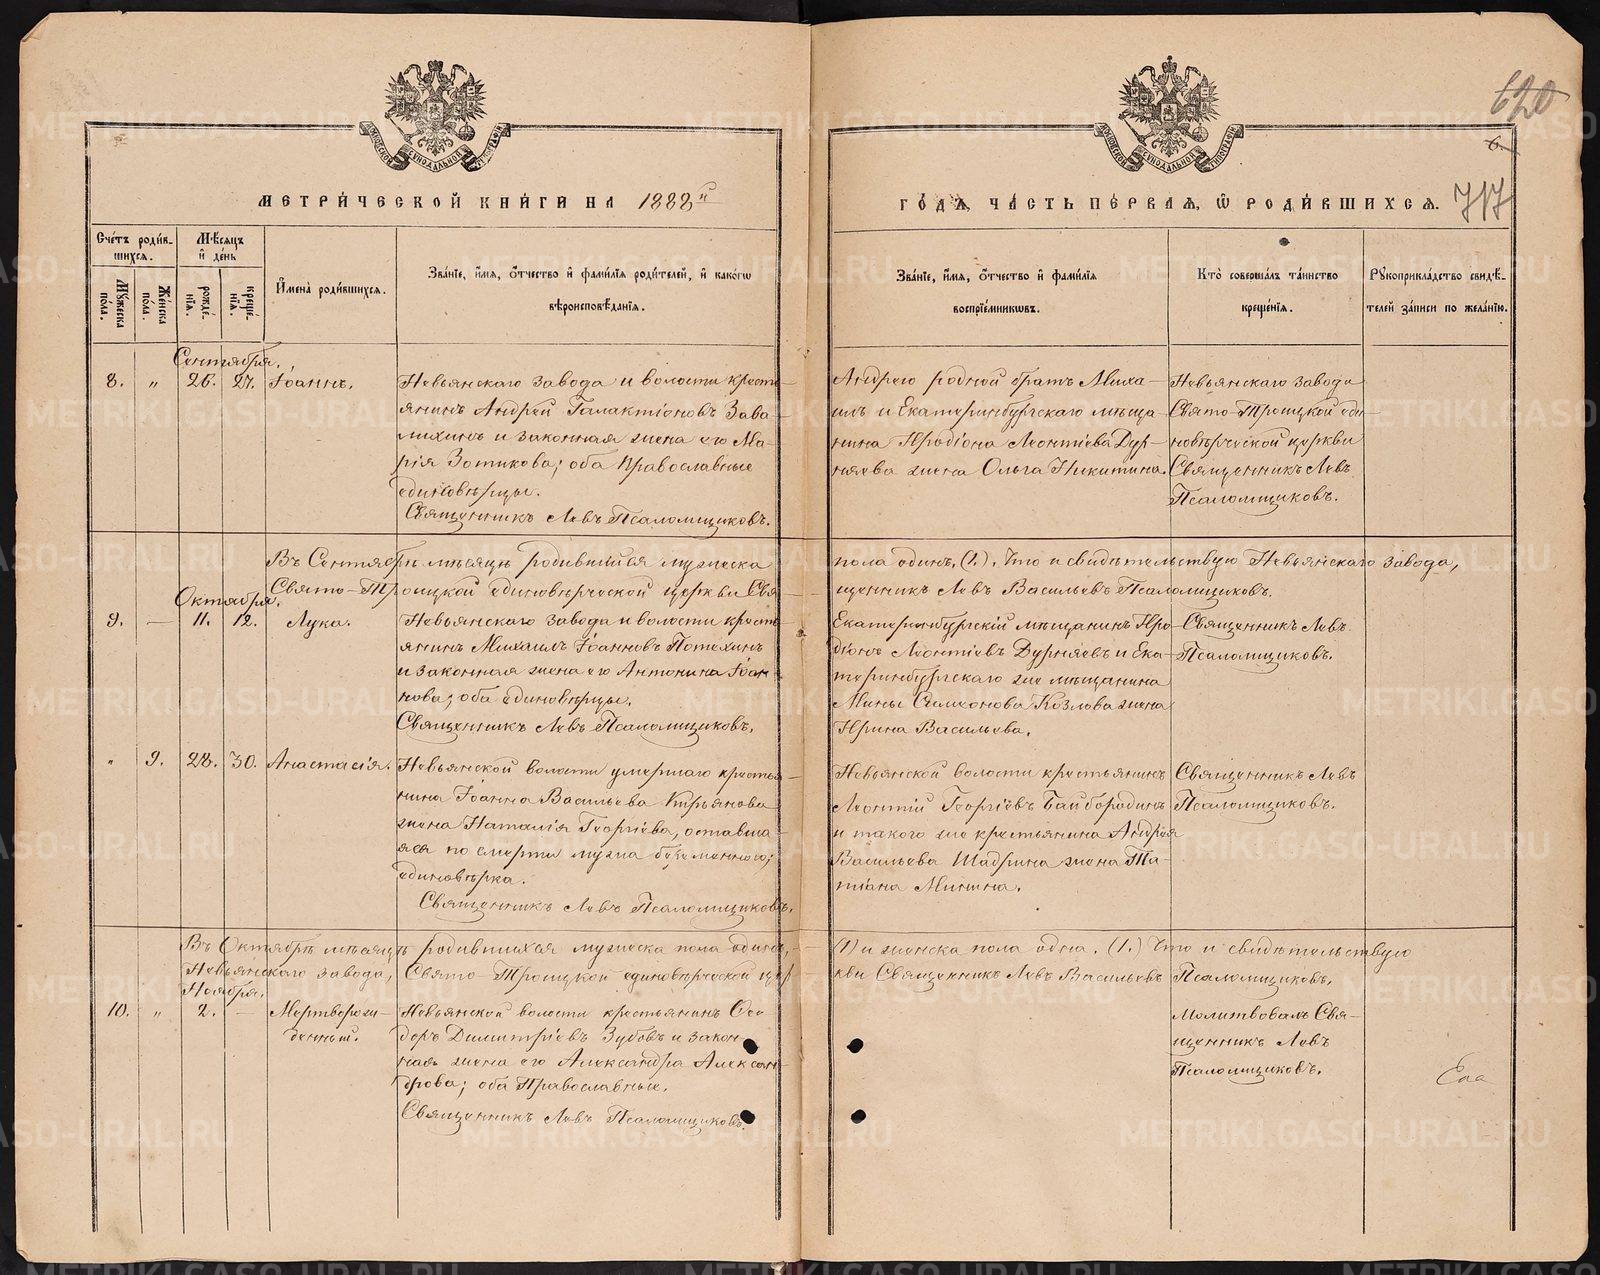 620
6.
717
МОСКОВСКОЙ СУНОДАЛЬНОЙ ТИПОГРАФІИ
МОСКОВСКОЙ СУНОДАЛЬНОЙ ТИПОГРАФІИ
МЕТРИ́ЧЕСКОЙ КНИ́ГИ НА 1888й
ГО́ДЪ, ЧА́СТЬ ПЕ́РВАЯ, Ѡ РОДИ́ВШИХСЯ.
Сче́тъ роди́в-
шихся.
Мѣ́сяцъ
и҆ де́нь
Мꙋ́жеска
по́ла.
Же́нска
по́ла.
рожде́-
нїя.
креще́-
нїя.
И҆мена̀ роди́вшихся.
Зва́нїе, и҆́мя, ѻ҆́тчество и҆ фами́лїя роди́телей, и҆ како́гѡ
вѣроисповѣ́данїя.
Зва́нїе, и҆́мя, ѻ҆́тчество и҆ фами́лїя
воспрїе́мникѡвъ.
Кто̀ соверша́лъ та́инство
креще́нїя.
Рꙋкоприкла́дство свидѣ́-
телей за́писи по жела́нїю.
Сентября.
8. „ 26. 27. Іоаннъ.
Невьянскаго завода и волости кресть-
янинъ Андрей Галактіоновъ Зава-
лихинъ и законная жена его Ма-
рія Зотикова; оба Православные
единовѣрцы.
Священникъ Левъ Псаломщиковъ.
Андрею родной братъ Миха-
илъ и Екатеринбургскаго мѣща-
нина Иродіона Леонтіева Дур-
няева жена Ольга Никитина.
Невьянскаго завода
Свято-Троицкой еди-
новѣрческой церкви
Священникъ Левъ
Псаломщиковъ.
Въ Сентябрѣ мѣсяцѣ родившійся мужеска пола одинъ. (1.). Что и свидѣтельствую Невьянскаго завода,
Свято-Троицкой единовѣрческой церкви Свя-щенникъ Левъ Васильевъ Псаломщиковъ.
Октября.
9. — 11. 12. Лука.
Невьянскаго завода и волости кресть-
янинъ Михаилъ Іоанновъ Потехинъ
и законная жена его Антонина Іоан-
нова; оба единовѣрцы.
Священникъ Левъ Псаломщиковъ.
Екатеринбургскій мѣщанинъ Иро-
діонъ Леонтіевъ Дурняевъ и Ека-
теринбургскаго же мѣщанина
Мины Симеонова Козлова жена
Ирина Васильева.
Священникъ Левъ
Псаломщиковъ.
„ 9. 28. 30. Анастасія.
Невьянской волости умершаго кресть-
нина Іоанна Васильева Кирьянова
жена Наталія Георгіева, оставша-
яся по смерти мужа беременною;
единовѣрка.
Священникъ Левъ Псаломщиковъ.
Невьянской волости крестьянинъ
Леонтій Георгіевъ Байбородинъ
и такого же крестьянина Андрея
Васильева Шадрина жена Та-
тіана Минина.
Священникъ Левъ
Псаломщиковъ.
Въ Октябрѣ мѣсяцѣ родившихся мужеска пола одинъ, (1) и женска пола одна. (1.) Что и свидѣтельствую
Невьянскаго завода, Свято-Троицкой единовѣрческой цер-кви Священникъ Левъ Васильевъ Псаломщиковъ.
Ноября.
10. „ 2. — Мертворож-
денный.
Невьянской волости крестьянинъ Ѳео-
доръ Димитріевъ Зубовъ и закон-
ная жена его Александра Алексан-
дрова; оба Православные.
Священникъ Левъ Псаломщиковъ.
Молитвовалъ Свя-
щенникъ Левъ
Псаломщиковъ.